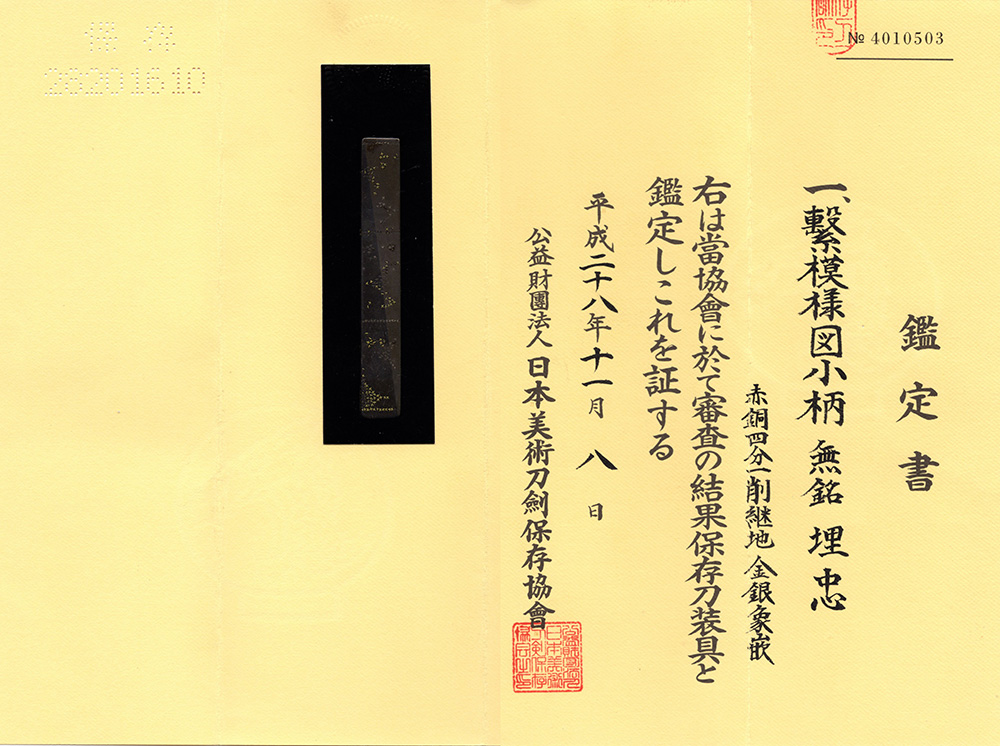 № 4010503
鑑定書
一、繋模様図小柄 無銘 埋忠
赤銅四分一削継地 金銀象嵌
右は當協會に於て審査の結果保存刀装具と
鑑定しこれを証する
平成二十八年十一月八日
公益財團法人 日本美術刀劍保存協會
保存
28201610